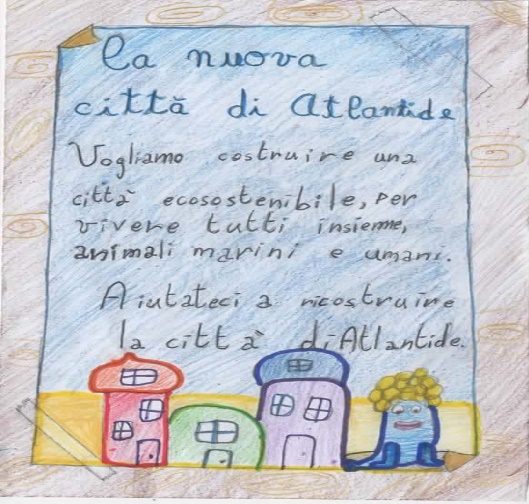 La nuova
città di Atlantide
Vogliamo costruire una
città ecosostenibile, per
vivere tutti insieme,
animali marini e umani.
Aiutateci a ricostruire
la città di Atlantide.